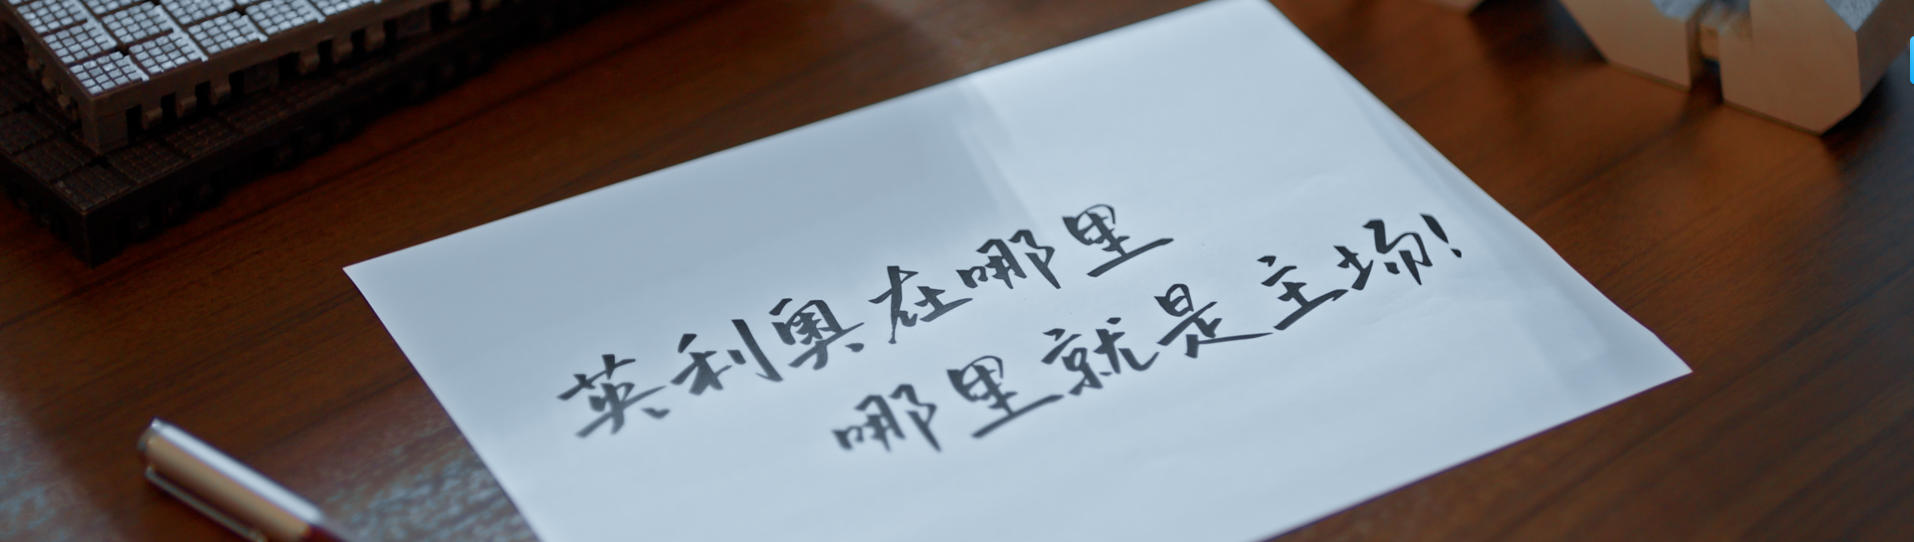 英利奥在哪里
哪里就是主场!